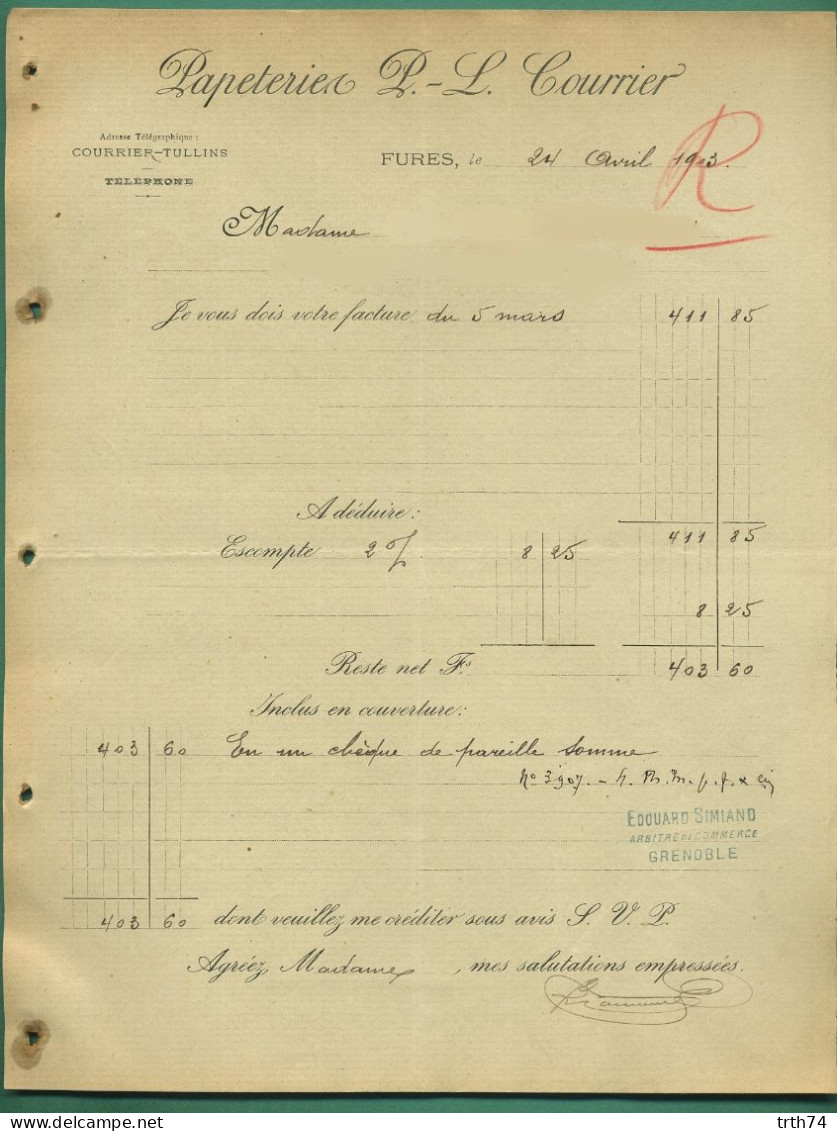 Papeteries P.-L. Courrier
Adresse Télégraphique :
COURRIER-TULLINS
TÉLÉPHONE
FURES, le 24 Avril 1903.
R
Madame
Je vous dois votre facture du 5 mars 411 85
A déduire : 411 85
Escompte 2 % 8 25
8 25
Reste net Fs. 403 60
Inclus en couverture :
403 60 En un chèque de pareille somme
No 3907.
EDOUARD SIMIAND
ARBITRE DE COMMERCE
GRENOBLE
403 60 dont veuillez me créditer sous avis S. V. P.
Agréez, Madame, mes salutations empressées.
trth74